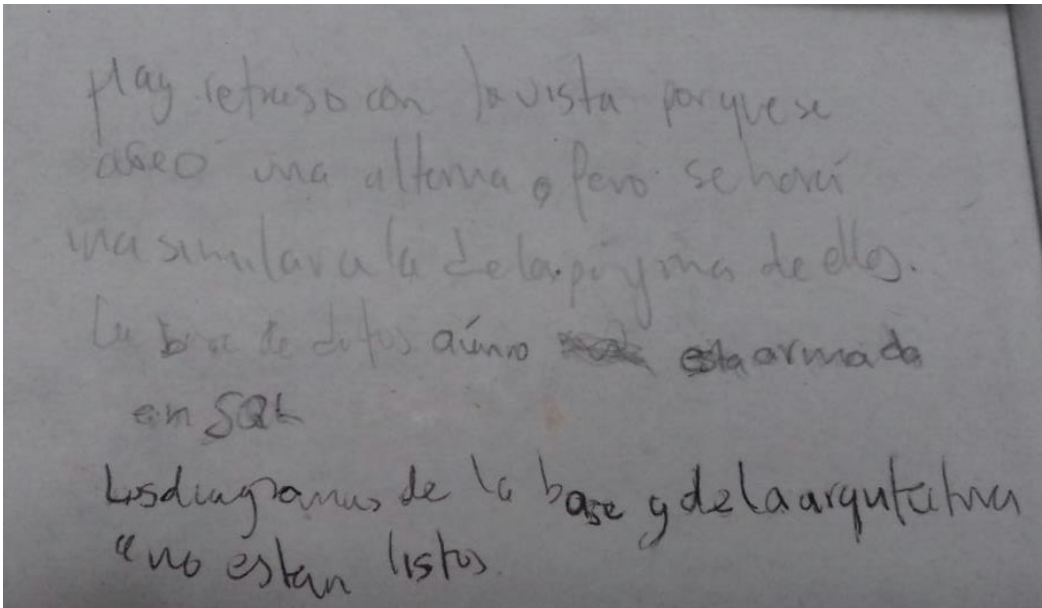 Hay retraso con la vista porque se
creó una alterna, pero se hará
una similar a la de la página de ellos.
La base de datos aún no esta armada
en SQL
Los diagramas de la base y de la arquitectura
no estan listos.